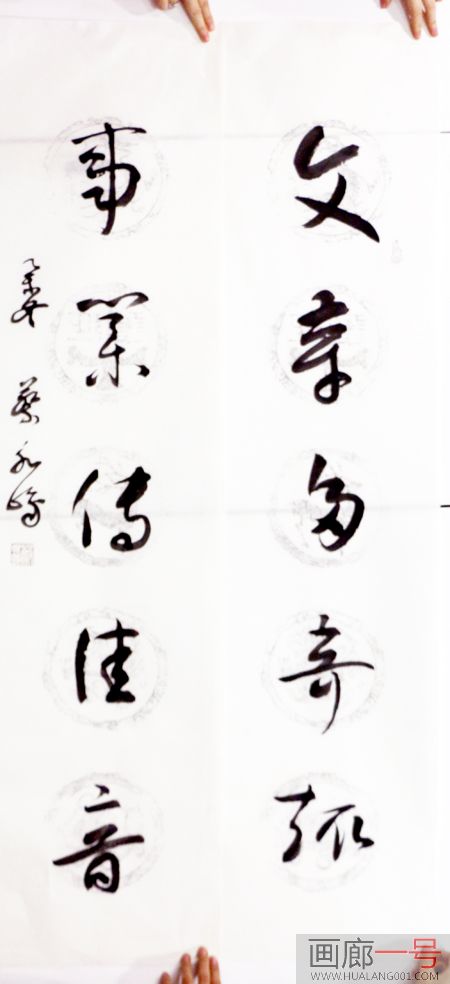 文章多奇
事業傳佳音
蔡永
画廊一号
WWW.HUALANG001.COM